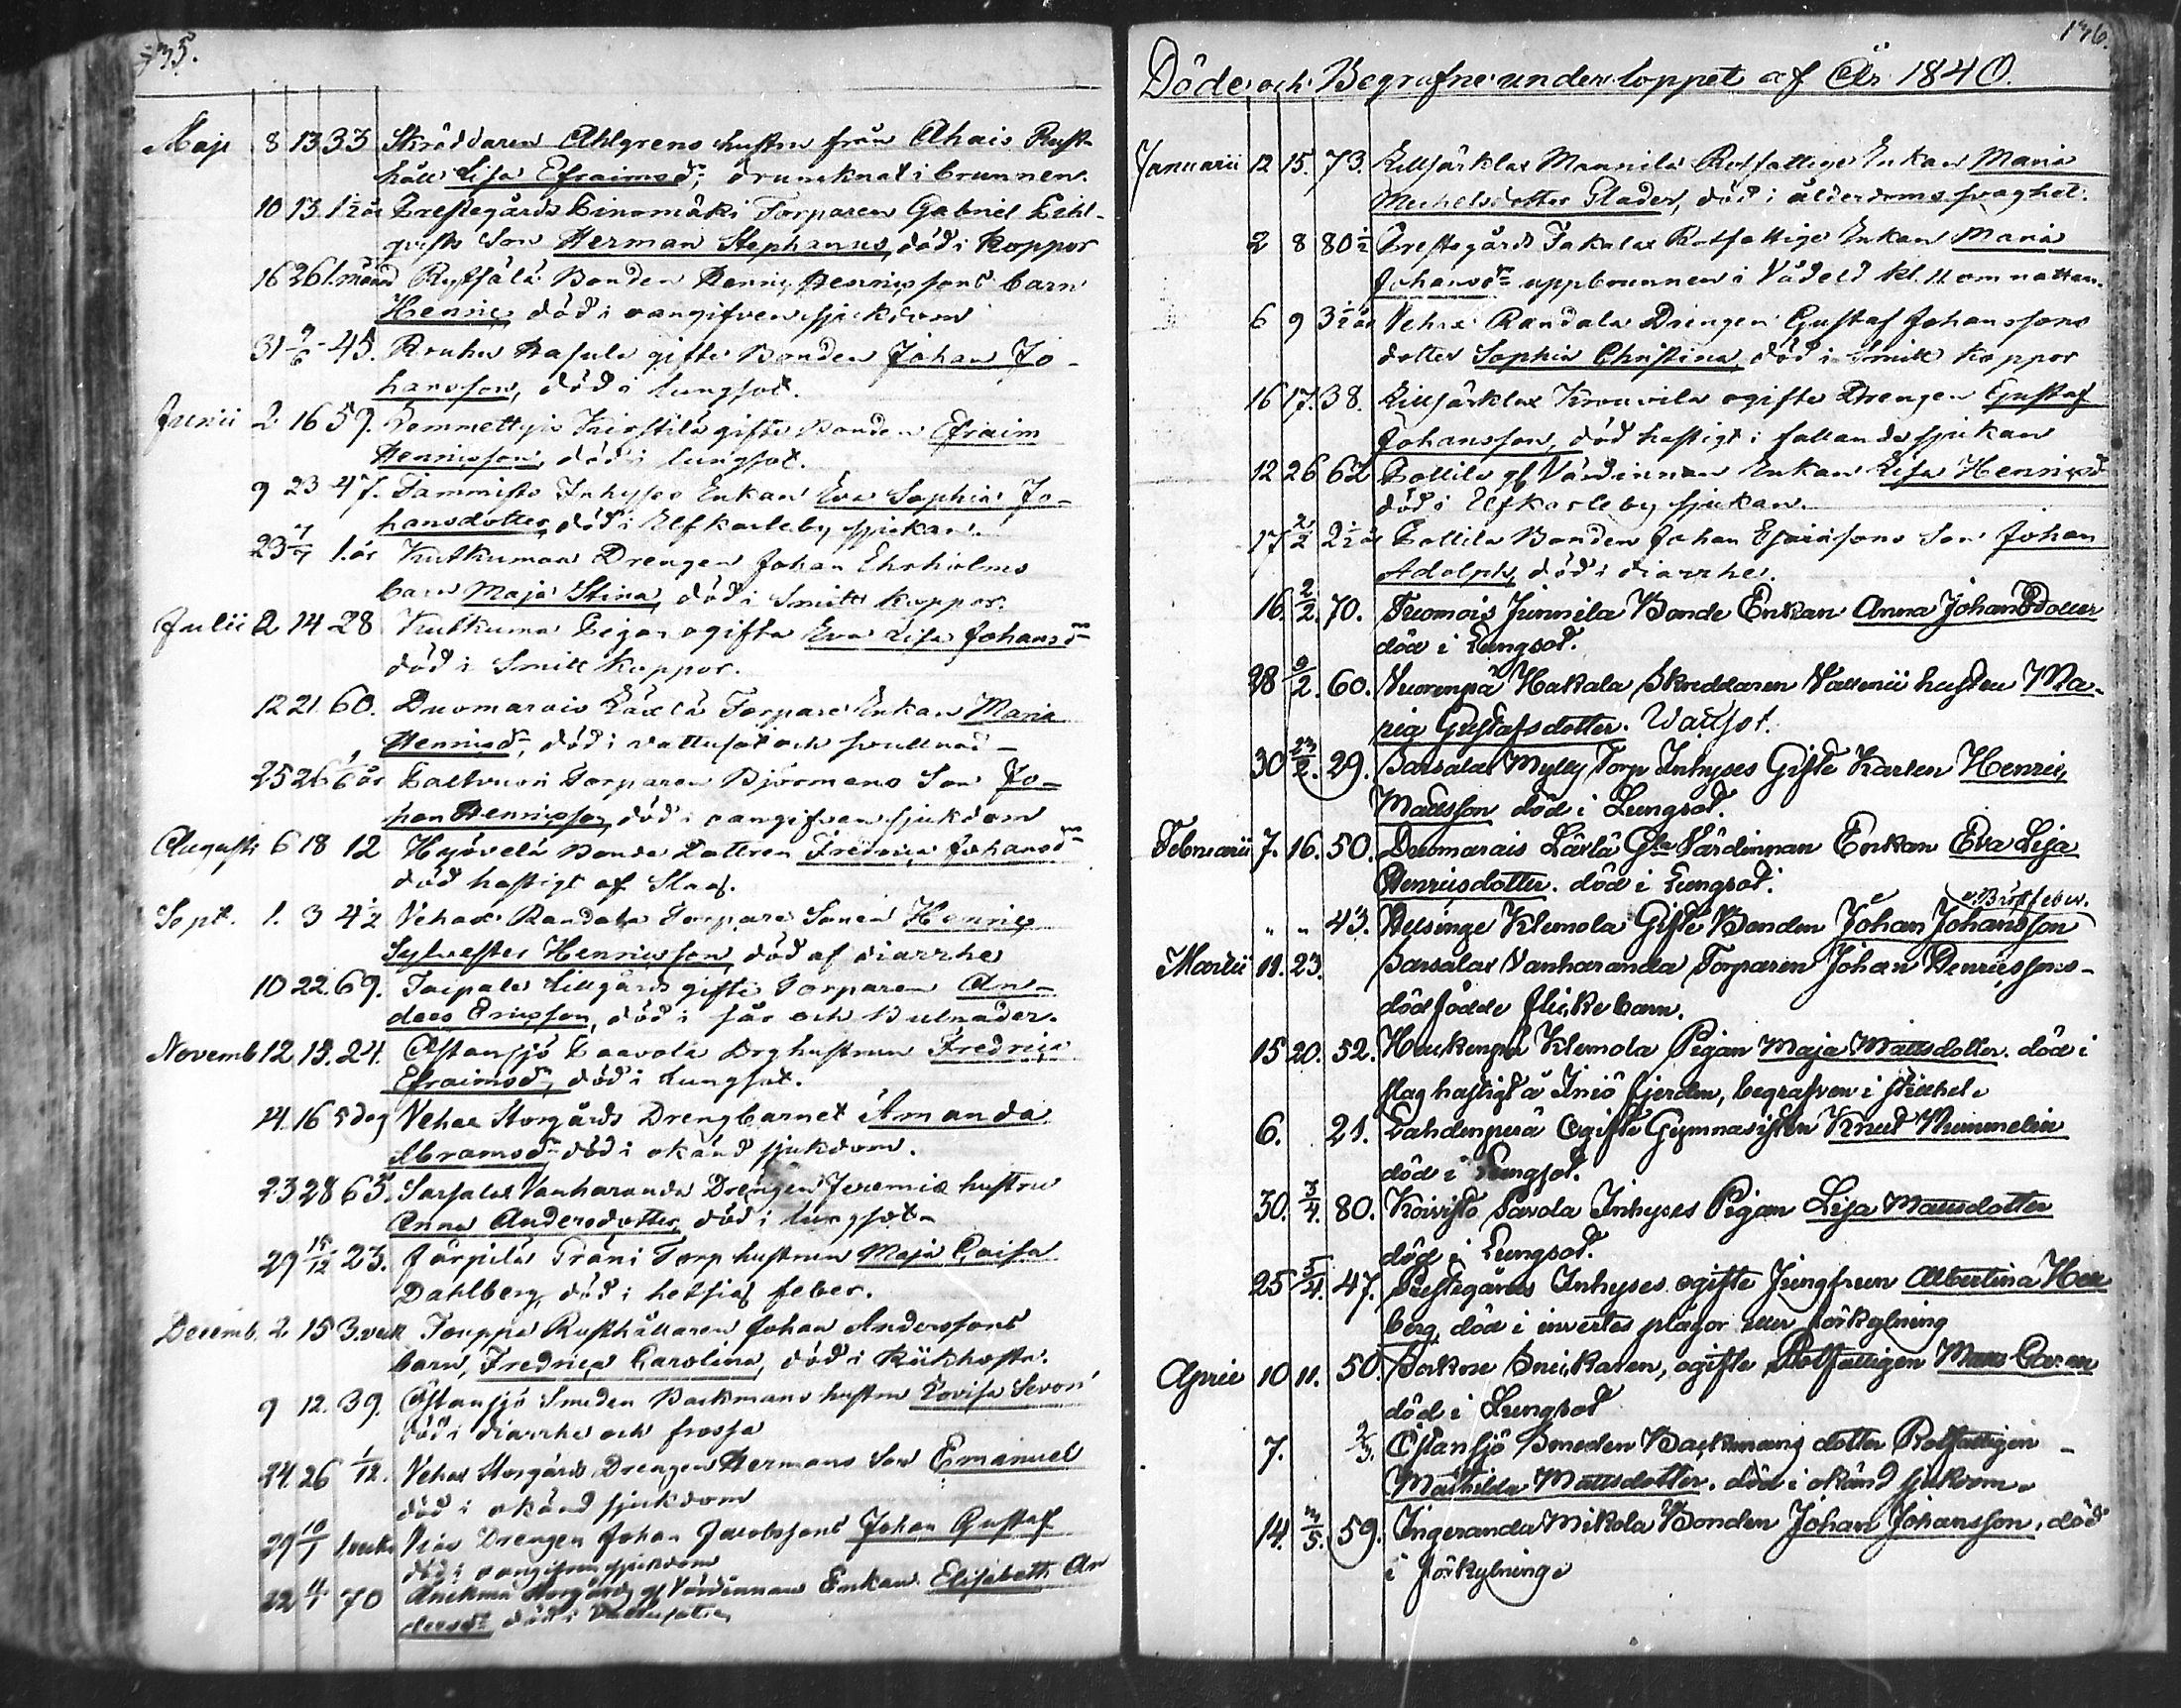 135.
Maji 8 13 33 Skräddaren Ahlgrens hustru från Ahais Rust-
håll Lisa Efraimsd; drunknat i brunnen.
10 13 1½ år Prestegårds Torparen Gabriel Lihl-
qvists Son Herman Stephanus, död i Koppor
16 26 1. månd Bonden Henric Henricssons barn
Henric, död i oangifven sjukdom
31 9/6 45. Rauhu gifte Bonden Johan Jo-
hansson, död i lungsot.
Junii 2 16 59. gifte Bonden Efraim
Henricsson, död i lungsot.
9 23 47. Tammisto Inhyses Enkan Eva Sophia Jo-
hansdotter, död i Elfkarleby sjukan.
23 1/7 1. år Kutkumaa Drengen Johan Ehrholms
barn Maja Stina, död i Smitt koppor.
Julii 2 14 28 Kutkuma Pigan ogifta Eva Lisa Johansdr
död i Smitt koppor.
12 21. 60. Duomarais Läxlä Torpare Enkan Maria
Henricsd, död i vattusot och svullnad -
25 26 1/6 år Torparen Björmans Son Jo-
han Henricsson, död i oangifven sjukdom
Augusti 6 18 12 Hyövelä Bonde Dottren Fredrica Johansdr
död hastigt af Slag.
Sept. 1. 3 4½ Vehax Randala Torpare Sonen Henric
Sylvester Henricsson, död af diarrhe
10 22. 69. Taipale Lillgårds gifte Torparen An-
ders Ericsson, död i sår och Bulnader.
Novemb 12. 13. 24. Ostansjö Paavola Drg hustrun Fredrica
Efraimsd, död i lungsot.
14. 16 5 dag Vehax Storgårds Drengbarnet Amanda
Abramsd död i okänd sjukdom.
23 28 65. Sarsalax Vanharanda Drengen Jeremias hustru
Anna Andersdotter, död i lungsot -
29 15/12 23. Järpilä Träni Torp hustrun Maja Caisa
Dahlberg, död i hetsig feber.
Decemb. 2. 15 3. veck Touppa Rusthållaren Johan Anderssons
barn, Fredrica Carolina, död i Kikhosta.
9 12. 39. Ostansjö Smeden Backmans hustru Lovisa Sevon
död i diarrhe och frossa
24. 26 1/12. Vehax Storgårds Drengen Hermans Son Emanuel
död i okänd sjukdom
29 10/1 Drengen Johan Jacobssons Johan Gustaf
död i oangifven sjukdom
22 4/1 70 Storgårds gl Värdinnan Enkan Elisabeth An
dersdr död i Vattusoten
136.
Döde och Begrafne under loppet af År 1840.
Januarii 12 15. 73. Killjärklax Mannila Rotfattige Enkan Maria
Michelsdotter Glader, död i ålderdoms svaghet.
2 8 80½ Prestegårds Rotfattige Enkan Maria
Johansdr uppbrunnen i Vådeld kl. 11 om natten.
6 9 3½ år Vehax Randala Drengen Gustaf Johanssons
dotter Sophia Christina, död i Smitt koppor
16 17. 38. Killjärklax Krouvila ogifte Drengen Gustaf
Johansson, död hastigt i fallande sjukan
12 26 62 Pollila gl Värdinnan Enkan Lisa Henricsd
död i Elfkarleby sjukan.
17 2/2 2½ år Pollila Bonden Johan Esaiassons Son Johan
Adolph, död i diarrhe.
16. 2/2. 70. Tuomois Junnila Bonde Enkan Anna Johansdotter
död i Lungsot.
28 9/2. 60. Vuorenpä Hakala Skreddaren hustru Ma-
ria Gustafsdotter. Wattsot.
30 23/2. 29. Sarsalax Mylly Torp Inhyses Gifte Karlen Henric
Mattsson död i Lungsot.
Februarii 7. 16. 50. Duomarais Läxlä Gla Värdinnan Enkan Eva Lisa
Henricsdotter. död i Lungsot.
" " 43. Helsinge Klemola Gifte Bonden Johan Johansson i Bröstfeber.
Martii 11. 23. Sarsalax Vanharanda Torparen Johan Henricssons -
dödfödde flickebarn.
15 20. 52. Haukenpä Klemola Pigan Maja Mattsdotter. död i
slag hastigt å Iniö fjerden, begrafven i
6. 21. Lahdenperä Ogifte Gymnasisten Knut Mummelin
död i Lungsot.
30. 3/4. 80. Koivisto Pavola Inhyses Pigan Lisa Mattsdotter
död i Lungsot.
25 5/4. 47. Prestegårds Inhyses ogifte Jungfrun Albertina Hell
berg, död i invertes plågor eller förkylning
April 10 11. 50. Snickaren, ogifte Rotfattigen
död i Lungsot
7. 2/3. Östansjö Smeden Backmans dotter Rotfattigen -
Mathilda Mattsdotter. död i okänd sjukdom.
14. 3/5. 59. Ingeranda Mikola Bonden Johan Johansson, död
i förkylning